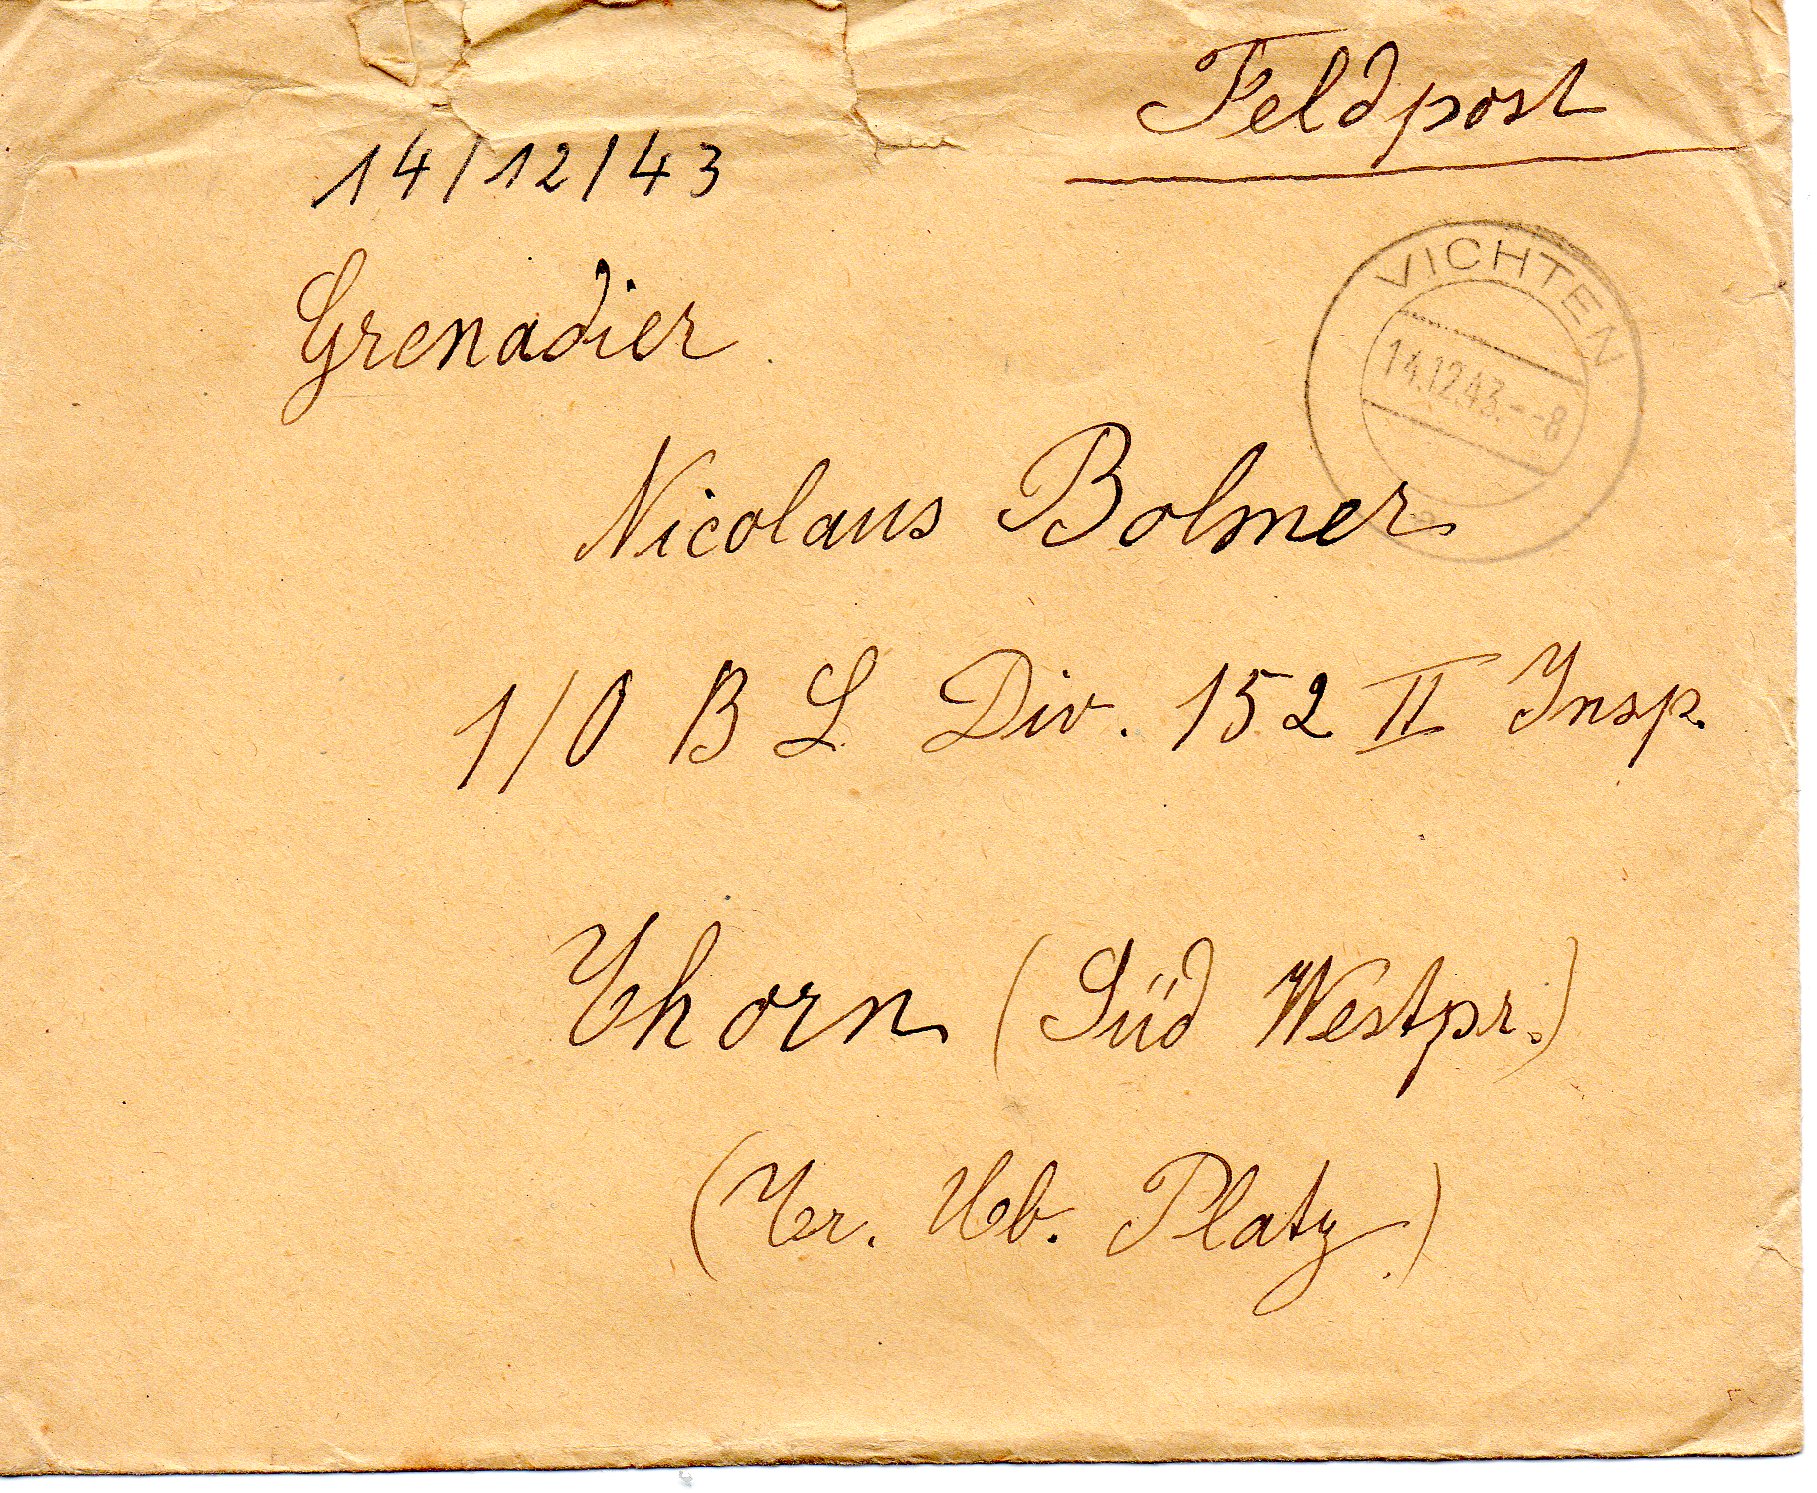 Feldpost
14/12/43
VICHTEN
14.12.43.--8
Grenadier
Nicolaus Bolmer
1/O B L Div. 152 II Insp.
Thorn (Süd Westpr.)
(Tr. Ueb. Platz)